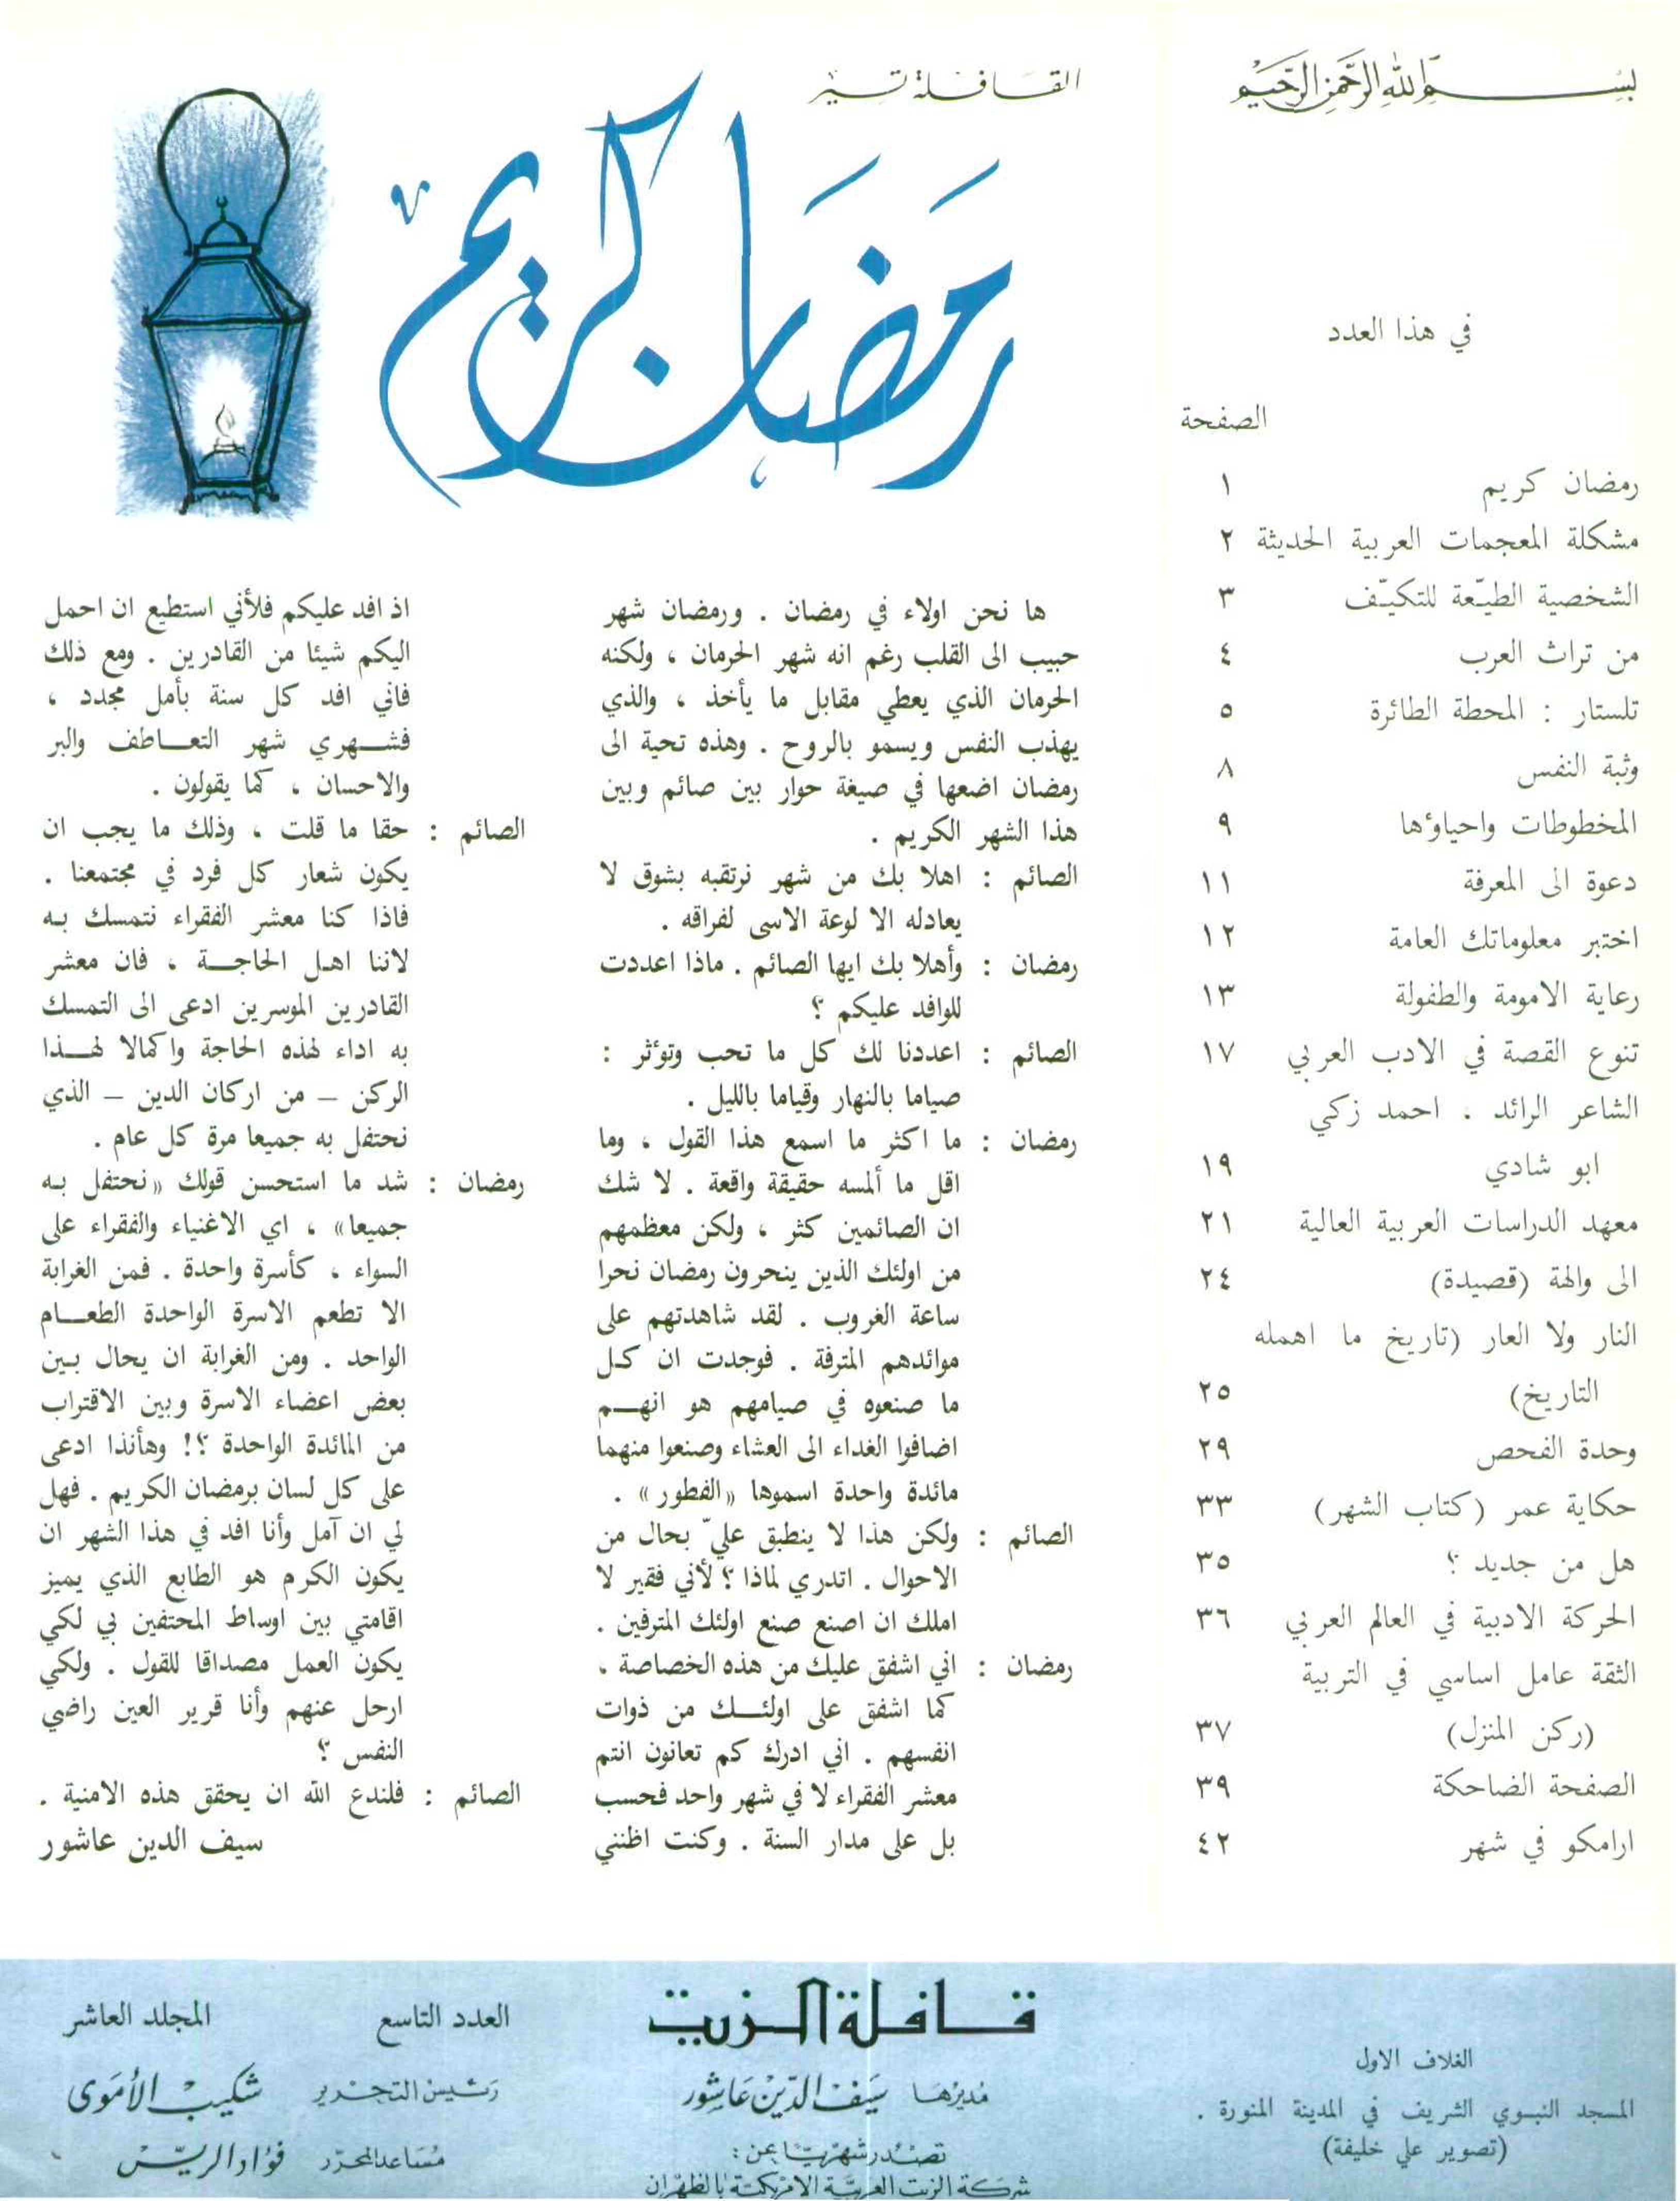 بسم الله الرحمن الرحيم
في هذا العدد
الصفحة
رمضان كريم ١
مشكلة المعجمات العربية الحديثة ٢
الشخصية الطيّعة للتكيّف ٣
من تراث العرب ٤
تلستار : المحطة الطائرة ٥
وثبة النفس ٨
المخطوطات واحياؤها ٩
دعوة الى المعرفة ١١
اختبر معلوماتك العامة ١٢
رعاية الامومة والطفولة ١٣
تنوع القصة في الادب العربي ١٧
الشاعر الرائد . احمد زكي
ابو شادي ١٩
معهد الدراسات العربية العالية ٢١
الى والهة (قصيدة) ٢٤
النار ولا العار (تاريخ ما اهمله
التاريخ) ٢٥
وحدة الفحص ٢٩
حكاية عمر (كتاب الشهر) ٣٣
هل من جديد ؟ ٣٥
الحركة الادبية في العالم العربي ٣٦
الثقة عامل اساسي في التربية
(ركن المنزل) ٣٧
الصفحة الضاحكة ٣٩
ارامكو في شهر ٤٢
القافلة تسير
رمضان كريم
ها نحن اولاء في رمضان . ورمضان شهر
حبيب الى القلب رغم انه شهر الحرمان ، ولكنه
الحرمان الذي يعطي مقابل ما يأخذ ، والذي
يهذب النفس ويسمو بالروح . وهذه تحية الى
رمضان اضعها في صيغة حوار بين صائم وبين
هذا الشهر الكريم .
الصائم : اهلا بك من شهر نرتقبه بشوق لا
يعادله الا لوعة الاسى لفراقه .
رمضان : وأهلا بك ايها الصائم . ماذا اعددت
للوافد عليكم ؟
الصائم : اعددنا لك كل ما تحب وتؤثر :
صياما بالنهار وقياما بالليل .
رمضان : ما اكثر ما اسمع هذا القول ، وما
اقل ما ألمسه حقيقة واقعة . لا شك
ان الصائمين كثر ، ولكن معظمهم
من اولئك الذين ينحرون رمضان نحرا
ساعة الغروب . لقد شاهدتهم على
موائدهم المترفة . فوجدت ان كل
ما صنعوه في صيامهم هو انهم
اضافوا الغداء الى العشاء وصنعوا منهما
مائدة واحدة اسموها «الفطور» .
الصائم : ولكن هذا لا ينطبق عليّ بحال من
الاحوال . اتدري لماذا ؟ لأني فقير لا
املك ان اصنع صنع اولئك المترفين .
رمضان : اني اشفق عليك من هذه الخصاصة ،
كما اشفق على اولئك من ذوات
انفسهم . اني ادرك كم تعانون انتم
معشر الفقراء لا في شهر واحد فحسب
بل على مدار السنة . وكنت اظنني
اذ افد عليكم فلأني استطيع ان احمل
اليكم شيئا من القادرين . ومع ذلك
فاني افد كل سنة بأمل مجدد ،
فشهري شهر التعاطف والبر
والاحسان ، كما يقولون .
الصائم : حقا ما قلت ، وذلك ما يجب ان
يكون شعار كل فرد في مجتمعنا .
فاذا كنا معشر الفقراء نتمسك به
لاننا اهل الحاجة ، فان معشر
القادرين الموسرين ادعى الى التمسك
به اداء لهذه الحاجة واكمالا لهذا
الركن – من اركان الدين – الذي
نحتفل به جميعا مرة كل عام .
رمضان : شد ما استحسن قولك «نحتفل به
جميعا» ، اي الاغنياء والفقراء على
السواء ، كأسرة واحدة . فمن الغرابة
الا تطعم الاسرة الواحدة الطعام
الواحد . ومن الغرابة ان يحال بين
بعض اعضاء الاسرة وبين الاقتراب
من المائدة الواحدة ؟! وهأنذا ادعى
على كل لسان برمضان الكريم . فهل
لي ان آمل وأنا افد في هذا الشهر ان
يكون الكرم هو الطابع الذي يميز
اقامتي بين اوساط المحتفين بي لكي
يكون العمل مصداقا للقول . ولكي
ارحل عنهم وأنا قرير العين راضي
النفس ؟
الصائم : فلندع الله ان يحقق هذه الامنية .
سيف الدين عاشور
الغلاف الاول
المسجد النبوي الشريف في المدينة المنورة .
(تصوير علي خليفة)
قافلة الزيت
مديرها سيف الدين عاشور
تصدر شهريا عن :
شركة الزيت العربية الامريكية بالظهران
العدد التاسع المجلد العاشر
رئيس التحرير شكيب الأموي
مساعد المحرر فؤاد الريس